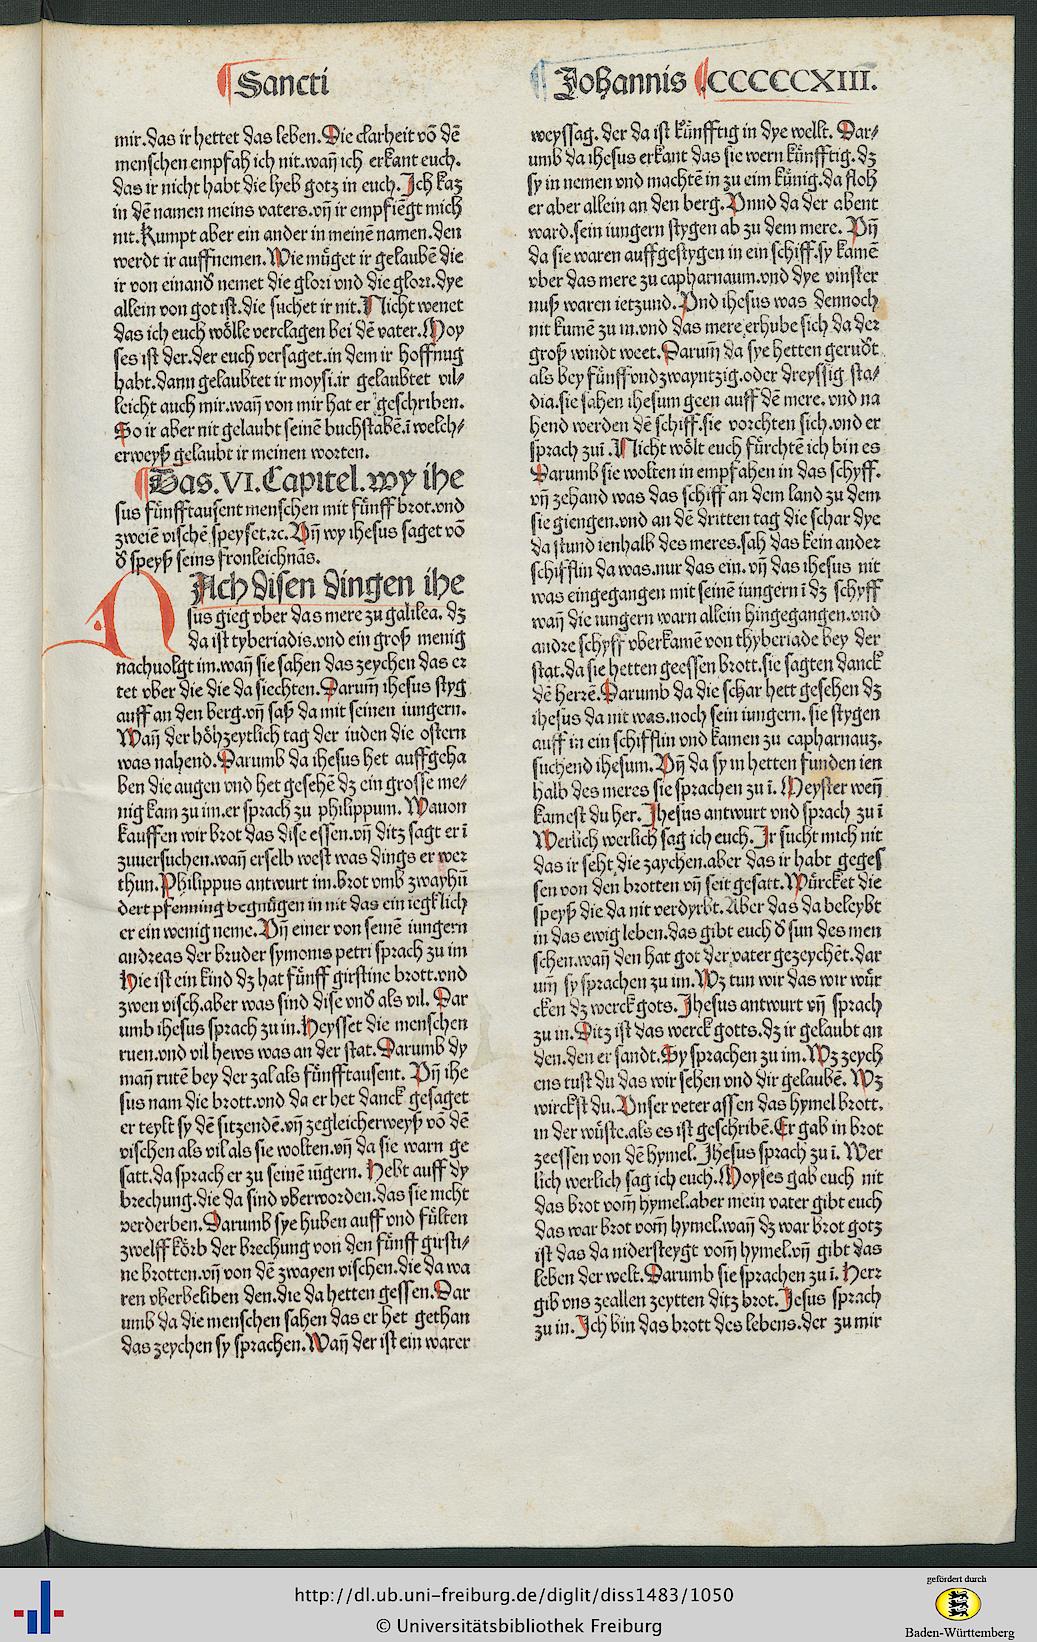 Sancti
Johannis CCCCCCXIII.
mir.das ir hettet das leben.Die clarheit võ dẽ
menschen empfah ich nit.wañ ich erkant euch.
das ir nicht habt die lyeb gotz in euch.Jch kaz
in dẽ namen meins vaters.vñ ir empfiẽgt mich
nit.Kumpt aber ein ander in meinẽ namen.den
werdt ir auffnemen.Wie mu̇get ir gelaubẽ die
ir von einanď nemet die glori vnd die glori.dye
allein von got ist.die suchet ir nit.Nicht wenet
das ich euch wo̊lle verclagen bei dẽ vater.Moy
ses ist der.der euch versaget.in dem ir hoffnug
habt.dann gelaubtet ir moysi.ir gelaubtet vil⸗
leicht auch mir.wañ von mir hat er geschriben.
So ir aber nit gelaubt seinẽ buchstabẽ.ĩ welch⸗
erweyß gelaubt ir meinen worten.
Das.VI.Capitel.wy ihe
sus fu̇nfftausent menschen mit fu̇nff brot.vnd
zweiẽ vischẽ speyset.⁊c.Vñ wy ihesus saget võ
ď speyß seins fronleichnãs.
NAch disen dingen ihe
sus gieg vber das mere zu galilea.dz
da ist tyberiadis.vnd ein groß menig
nachuolgt im.wañ sie sahen das zeychen das er
tet vber die die da siechten.Darum̃ ihesus styg
auff an den berg.vñ saß da mit seinen iungern.
Wañ der ho̊hzeytlich tag der iuden die ostern
was nahend.Darumb da ihesus het auffgeha
ben die augen vnd het gesehẽ dz ein grosse me⸗
nig kam zu im.er sprach zu philippum.Wauon
kauffen wir brot das dise essen.vñ ditz sagt er ĩ
zuuersuchen.wañ erselb west was dings er wer
thun.Philippus antwurt im.brot vmb zwayhũ
dert pfenning begnu̇gen in nit das ein iegklich
er ein wenig neme.Vñ einer von seinẽ iungern
andreas der bruder symonis petri sprach zu im
Hie ist ein kind dz hat fu̇nff girstine brott.vnd
zwen visch.aber was sind dise vnď als vil.Dar
umb ihesus sprach zu in.Heysset die menschen
ruen.vnd vil hews was an der stat.Darumb dy
mañ rutẽ bey der zal als fu̇nfftausent.Vñ ihe
sus nam die brott.vnd da er het danck gesaget
er teylt sy dẽ sitzendẽ.vñ zegleicherweyß võ dẽ
vischen als vil als sie wolten.vñ da sie warn ge
satt.da sprach er zu seinẽ iũgern.Hebt auff dy
brechung.die da sind vberworden.das sie nicht
verderben.Darumb sye huben auff vnd fu̇lten
zwelff ko̊rb der brechung von den fu̇nff girsti⸗
ne brotten.vñ von dẽ zwayen vischen.die da wa
ren vberbeliben den.die da hetten gessen.Dar
umb da die menschen sahen das er het gethan
das zeychen sy sprachen.Wañ der ist ein warer
weyssag.der da ist ku̇nfftig in dye wellt.Dar⸗
umb da ihesus erkant das sie wern ku̇nfftig.dz
sy in nemen vnd machtẽ in zu eim ku̇nig.da floh
er aber allein an den berg.Vnnd da der abent
ward.sein iungern stygen ab zu dem mere.Vñ
da sie waren auffgestygen in ein schiff.sy kamẽ
vber das mere zu capharnaum.vnd dye vinster
nuß waren ietzund.Vnd ihesus was dennoch
nit kumẽ zu in.vnd das mere erhube sich.da der
groß windt weet.Darum̃ da sye hetten geruďt
als bey fu̇nff vnd zwayntzig.oder dreyssig sta⸗
dia.sie sahen ihesum geen auff dẽ mere.vnd na
hend werden dẽ schiff.sie vorchten sich.vnd er
sprach zui.Nicht wo̊lt euch fu̇rchtẽ ich bin es
Darumb sie wolten in empfahen in das schyff.
vñ zehand was das schiff an dem land zu dem
sie giengen.vnd an dẽ dritten tag die schar dye
da stund ienhalb des meres.sah das kein ander
schifflin da was.nur das ein.vñ das ihesus nit
was eingegangen mit seinẽ iungern ĩ dz schyff
wañ die iungern warn allein hingegangen.vnd
andre schyff vberkamẽ von thyberiade bey der
stat.da sie hetten geessen brott.sie sagten danck
dẽ herrẽ.Darumb da die schar hett gesehen dz
ihesus da nit was.noch sein iungern.sie stygen
auff in ein schifflin vnd kamen zu capharnauz.
suchend ihesum.Vñ da sy in hetten funden ien
halb des meres sie sprachen zu ĩ.Meyster weñ
kamest du her.Jhesus antwurt vnd sprach zu ĩ
Werlich werlich sag ich euch.Jr sucht mich nit
das ir seht die zaychen.aber das ir habt geges
sen von den brotten vñ seit gesatt.Wu̇rcket die
speyß die da nit verdyrbt.Aber das da beleybt
in das ewig leben.das gibt euch ď sun des men
schen.wañ den hat got der vater gezeychẽt.dar
um̃ sy sprachen zu im.Wz tun wir das wir wu̇r
cken dz werck gots.Jhesus antwurt vñ sprach
zu in.Ditz ist das werck gotts.dz ir gelaubt an
den.den er sandt.Sy sprachen zu im.Wz zeych
ens tust du das wir sehen vnd dir gelaubẽ.Wz
wirckst du.Vnser veter assen das hymel brott.
in der wu̇ste.als es ist geschribẽ.Er gab in brot
zeessen von dẽ hymel.Jhesus sprach zu ĩ.Wer
lich werlich sag ich euch.Moyses gab euch nit
das brot vom̃ hymel.aber mein vater gibt euch
das war brot vom̃ hymel.wañ dz war brot gotz
ist das da nidersteygt vom̃ hymel.vñ gibt das
leben der welt.Darumb sie sprachen zu ĩ.Herr
gib vns zeallen zeytten ditz brot.Jesus sprach
zu in.Jch bin das brott des lebens.der zu mir
http://dl.ub.uni-freiburg.de/diglit/diss1483/1050
© Universitätsbibliothek Freiburg
gefördert durch
Baden-Württemberg